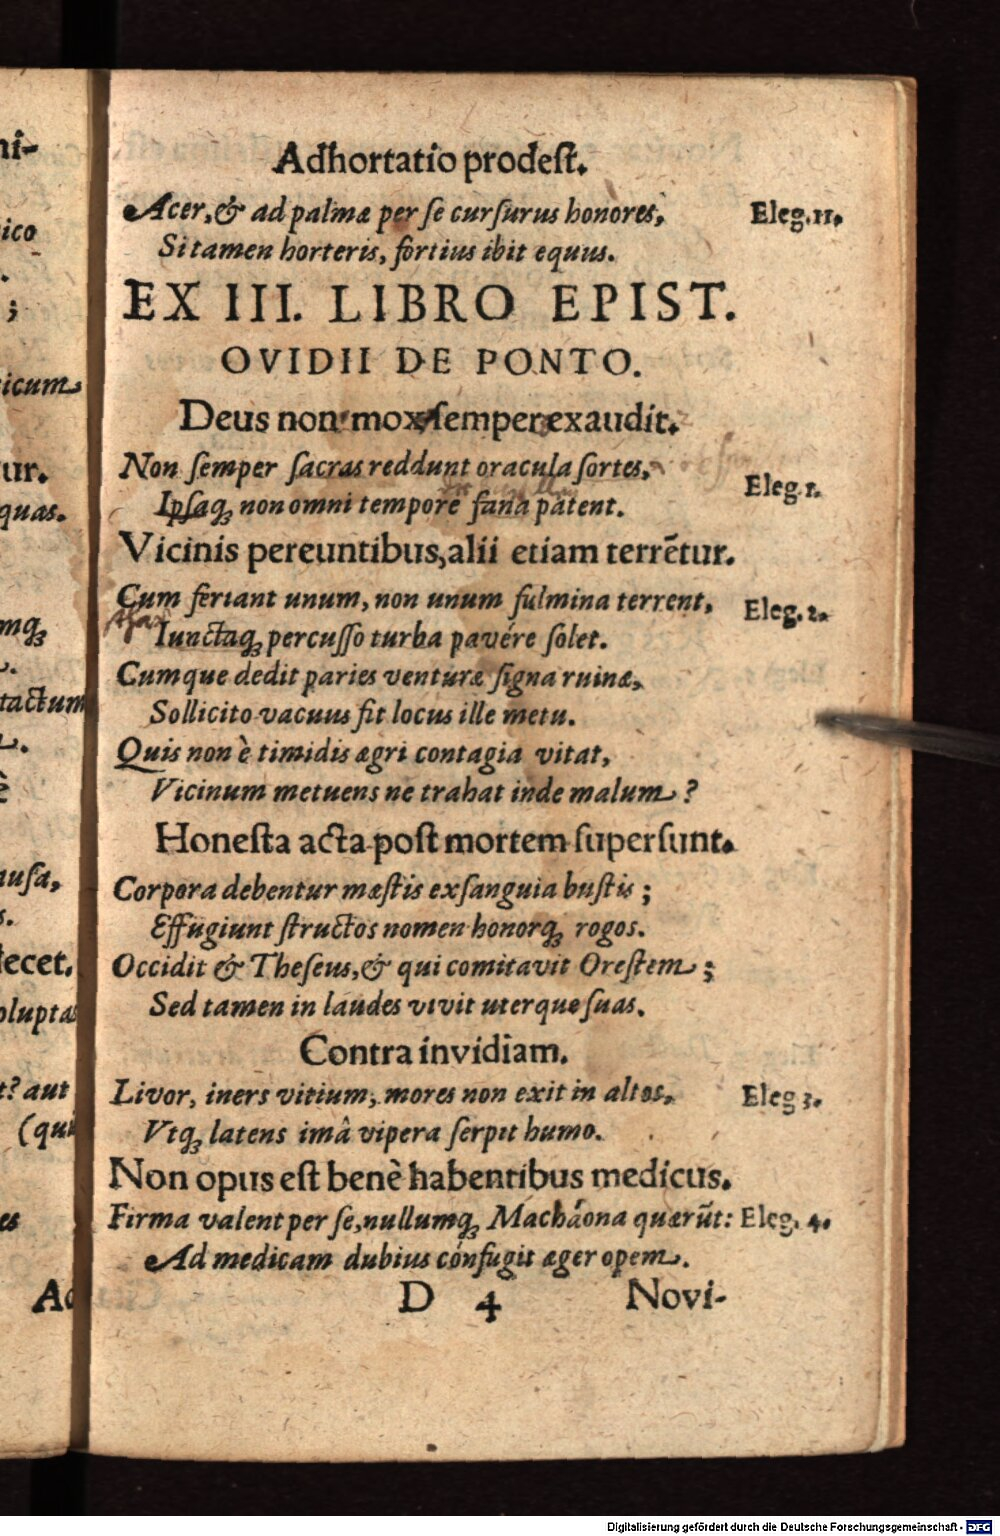 Adhortatio prodest.
Acer, & ad palmæ per se cursurus honores, Eleg. 11.
Si tamen horteris, fortius ibit equus.
EX III. LIBRO EPIST.
OVIDII DE PONTO.
Deus non mox semper exaudit.
Non semper sacras reddunt oracula sortes, Eleg. 1.
Ipsaq; non omni tempore fana patent.
Vicinis pereuntibus, alii etiam terrẽtur.
Cum feriant unum, non unum fulmina terrent, Eleg. 2.
Iunctaq; percusso turba pavére solet.
Cumque dedit paries venturæ signa ruinæ,
Sollicito vacuus fit locus ille metu.
Quis non è timidis ægri contagia vitat,
Vicinum metuens ne trahat inde malum?
Honesta acta post mortem supersunt.
Corpora debentur mæstis exsanguia bustis;
Effugiunt structos nomen honorq; rogos.
Occidit & Theseus, & qui comitavit Orestem;
Sed tamen in laudes vivit uterque suas.
Contra invidiam.
Livor, iners vitium, mores non exit in altos, Eleg 3.
Vtq; latens imâ vipera serpit humo.
Non opus est benè habentibus medicus.
Firma valent per se, nullumq; Macháona quærũt: Eleg. 4.
Ad medicam dubius cónfugit æger opem.
D 4 Novi-
ni-
ico
;
icum
ur.
quas.
mq;
tactum
è
ausa,
s.
decet.
olupta
t? aut
(qui
es
Ad
Digitalisierung gefördert durch die Deutsche Forschungsgemeinschaft - DFG